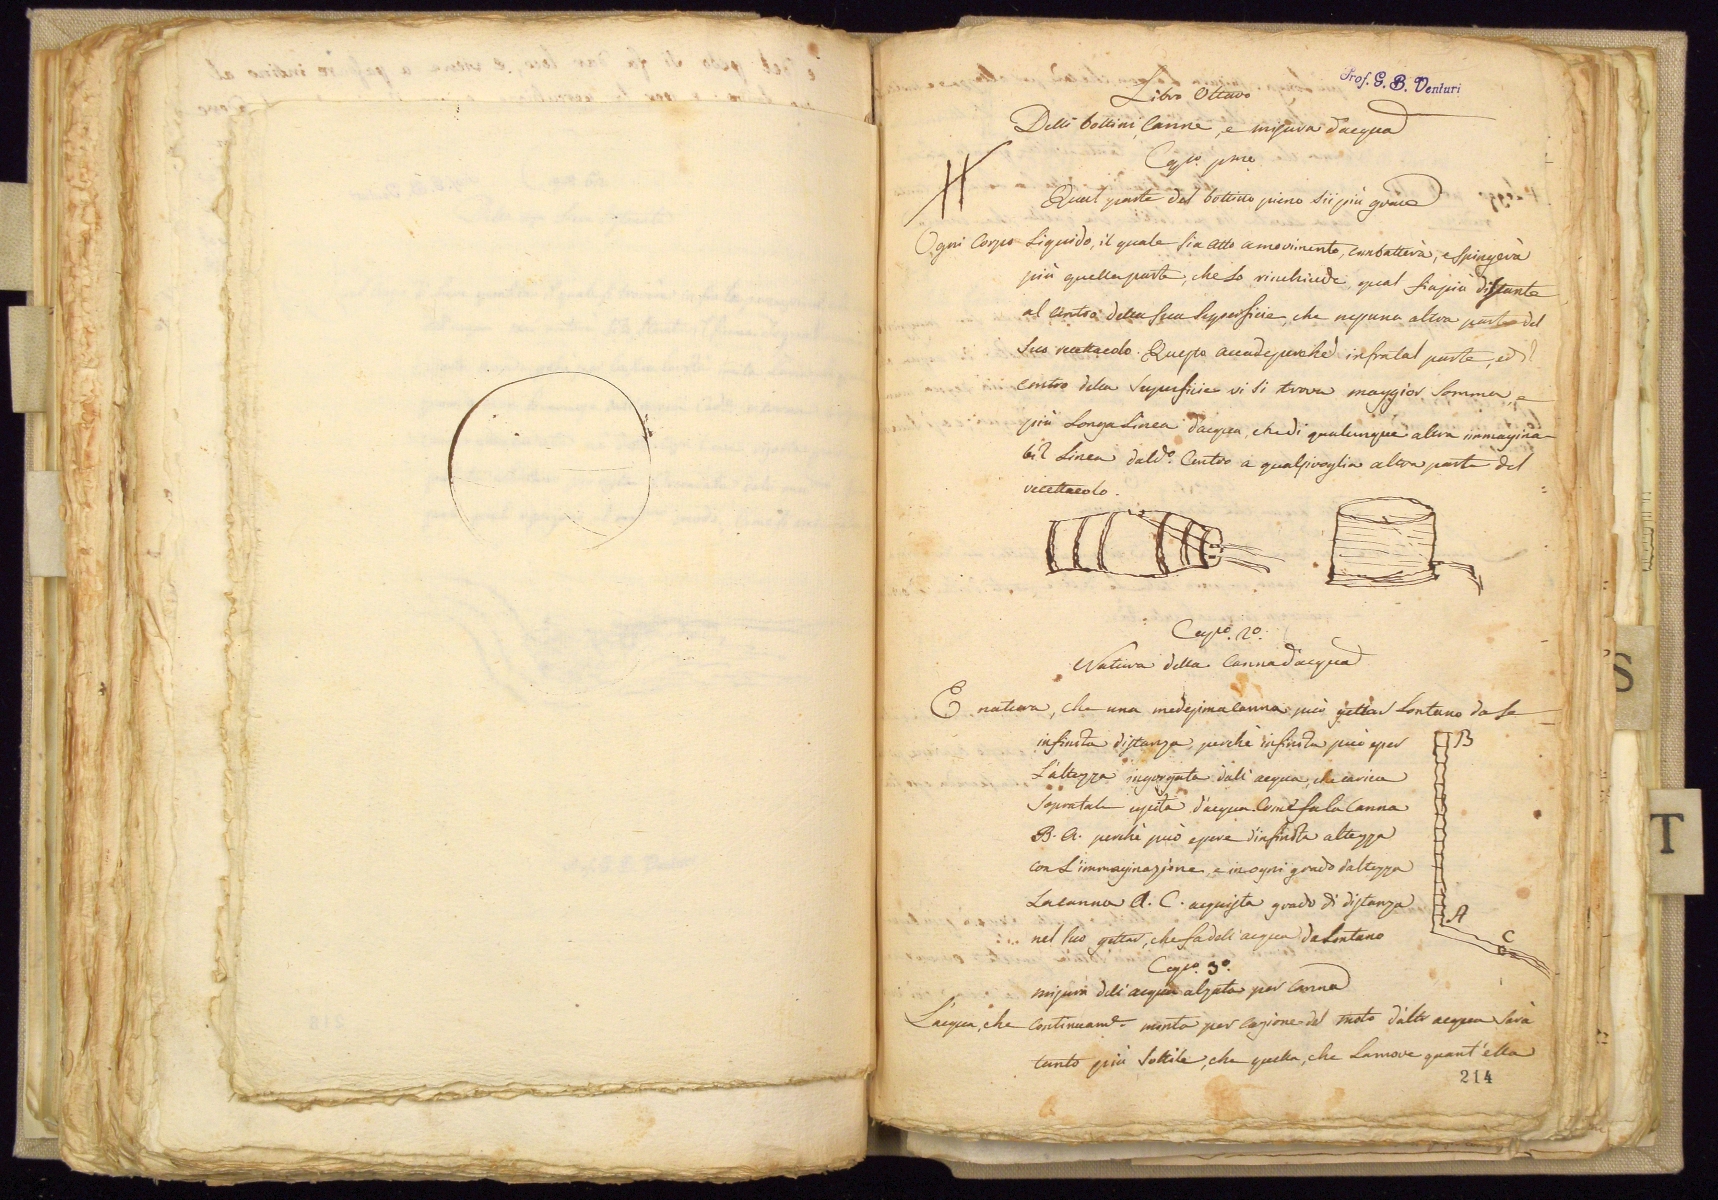 Prof. G. B. Venturi
Libro Ottavo
Delli bottini, Canne, e misura d'acqua
Capo. pmo
Qual parte del bottino pieno sii più grave
Ogni Corpo Liquido, il quale sia atto a movimento, combatterà, e spingerà
più quella parte, che lo rinchiude, qual fia più distante
al Centro della sua Superficie, che nessuna altra parte del
suo recettacolo. Questo accade perchè infra tal parte, ed il
centro della Superficie vi si trova maggior Somma, e
più Longa Linea d'acqua, che di qualunque altra immagina-
bil Linea dal do. Centro a qualsivoglia altra parte del
recettacolo.
Capo. 2o.
Natura della Canna d'acqua
E natura, che una medesima Canna può gettar Lontano da se
infinita distanza, perchè infinita può esser
L'altezza ingorgata dall' acqua, che carica
sopra tale uscita d'acqua. Come fa la Canna
B. A. perchè può essere d'infinita altezza
con L'immaginazione, e in ogni grado d'altezza
La canna A. C. acquista grado di distanza
nel suo gettar, che fa dell' acqua da Lontano
B
A
C
Capo. 3o.
misura dell' acqua alzata per Canna
L'acqua, che continuamte. monta per cagione del moto d'altr acqua sarà
tanto più sottile, che quella, che La move quant' ella
214
S
T